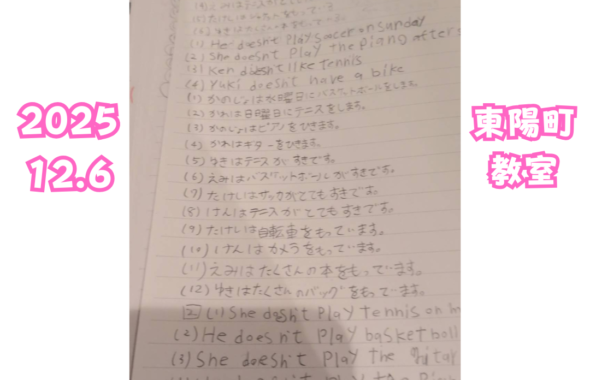 2025
12.6
東陽町
教室
(1) He doesn't play sacer on sunday
(2) She doesn't play the piano after
(3) Ken doesn't like tennis
(4) Yuki doesn't have a bike
(1) かのじょは水曜日にバスケットボールをします。
(2) かれは日曜日にテニスをします。
(3) かのじょはピアノをひきます。
(4) かれはギターをひきます。
(5) ゆきはテニスがすきです。
(6) えみはバスケットボールがすきです。
(7) たけしはサッカがとてもすきです。
(8) けんはテニスがとてもすきです。
(9) たけしは自転車をもっています。
(10) けんはカメラをもっています。
(11) えみはたくさんの本をもっています。
(12) ゆきはたくさんのバッグをもっています。
2 (1) She doesn't play tennis on
(2) He doesn't play basketboll
(3) She doesn't play the guitar